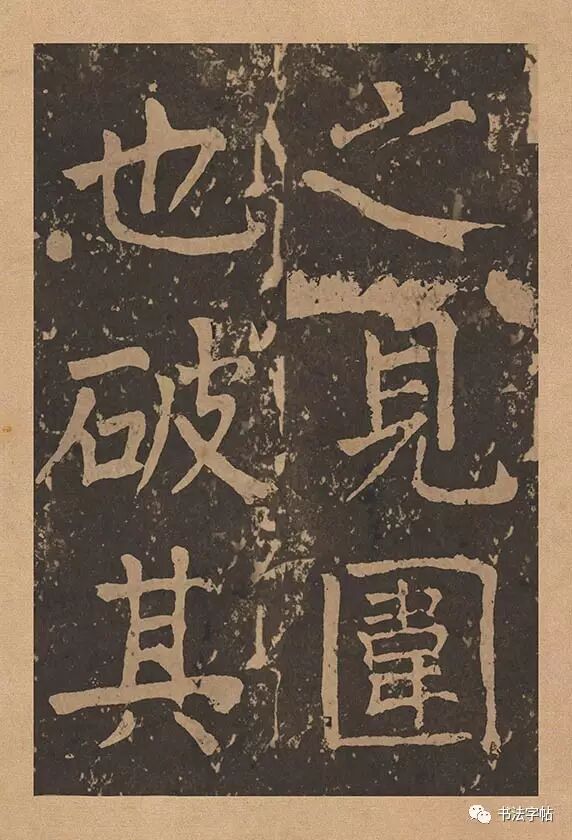 之見圍
也破其
书法字帖